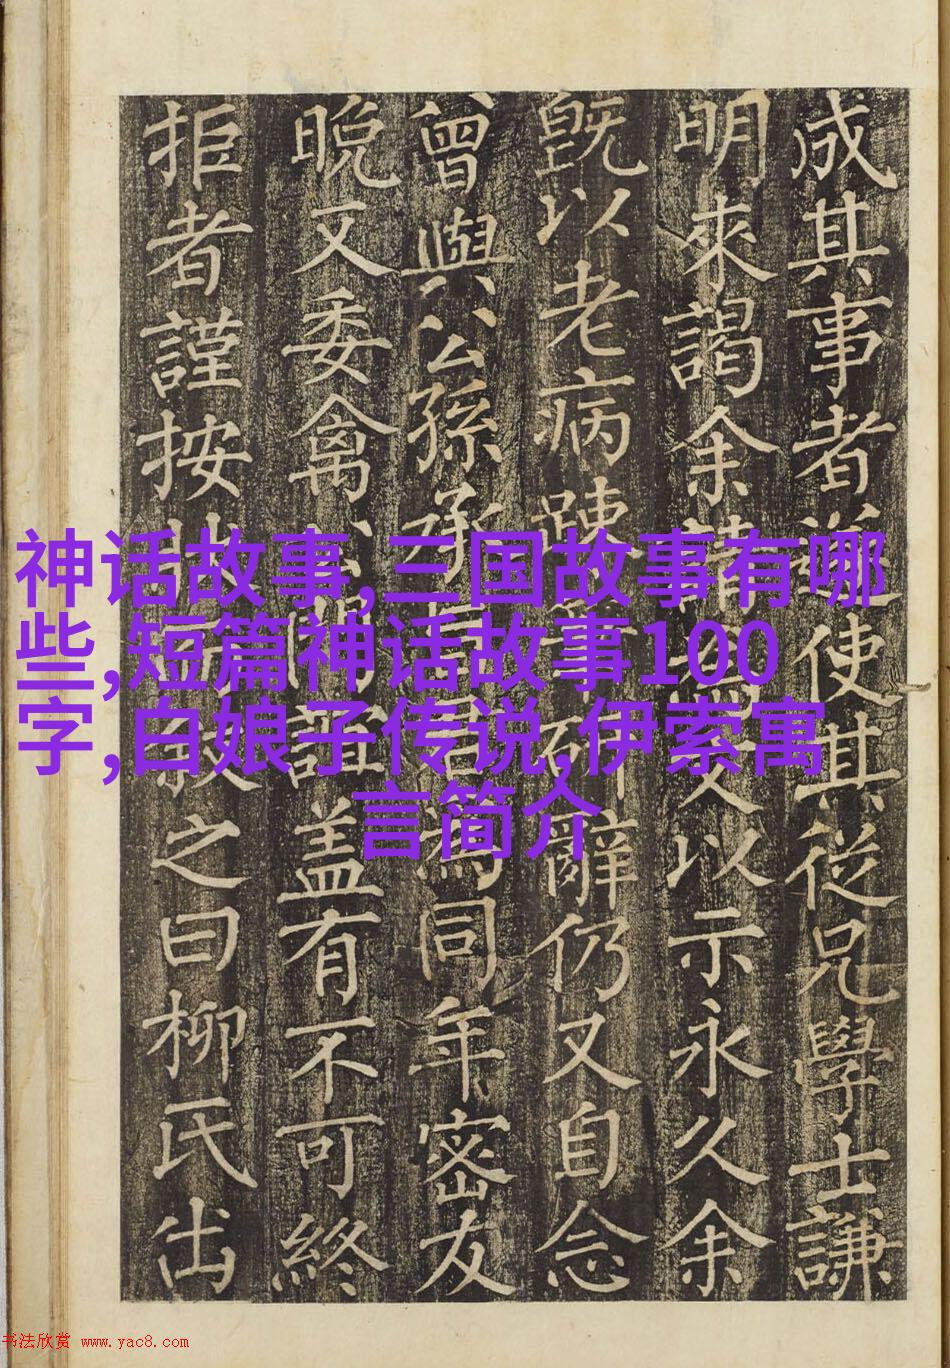 成其事者使其從兄學士謙
明來謁余以示永久余
旣以老病辭仍又自念
曾與公孫承同年密友
晩又委禽盖有不可終
拒者謹按之曰柳氏出
神话故事,三国故事有哪
些,短篇神话故事100
字,白娘子传说,伊索寓
言简介
书法欣赏 www.yac8.com